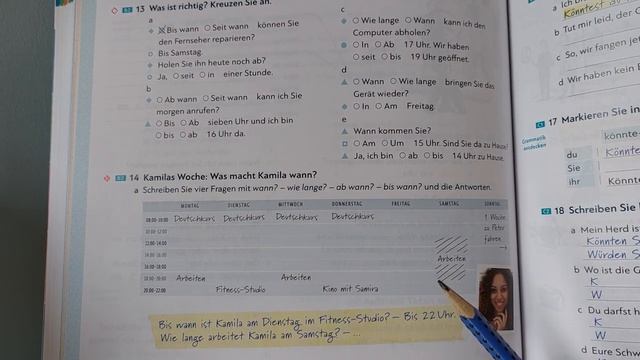 B2 13 Was ist richtig? Kreuzen Sie an.
a
Bis wann Seit wann können Sie
den Fernseher reparieren?
Bis Samstag.
Holen Sie ihn heute noch ab?
Ja, seit in einer Stunde.
b
Ab wann Seit wann kann ich Sie
morgen anrufen?
Bis Ab sieben Uhr und ich bin
bis ab 16 Uhr da.
c
Wie lange Wann kann ich den
Computer abholen?
In Ab 17 Uhr. Wir haben
seit bis 19 Uhr geöffnet.
d
Wann Wie lange bringen Sie das
Gerät wieder?
In Am Freitag.
e
Wann kommen Sie?
Am Um 15 Uhr. Sind Sie da zu Hause?
Ja, ich bin ab bis 14 Uhr zu Hause.
B2 14 Kamilas Woche: Was macht Kamila wann?
a Schreiben Sie vier Fragen mit wann? – wie lange? – ab wann? – bis wann? und die Antworten.
MONTAG DIENSTAG MITTWOCH DONNERSTAG FREITAG SAMSTAG SONNTAG
08:00-10:00 Deutschkurs Deutschkurs Deutschkurs Deutschkurs 1 Woche
10:00-12:00 zu Peter
12:00-14:00 fahren
14:00-16:00 Arbeiten
16:00-18:00
18:00-20:00 Arbeiten Arbeiten
20:00-22:00 Fitness-Studio Kino mit Samira
Bis wann ist Kamila am Dienstag im Fitness-Studio? – Bis 22 Uhr.
Wie lange arbeitet Kamila am Samstag? – ...
a Ich
Könntest
b Tut mir leid, der C
c So, wir fangen jet
d Wir haben kein
C1 17 Markieren Sie in
Grammatik entdecken
könnte-
du Könnte
Sie
ihr Könnt
C2 18 Schreiben Sie
a Mein Herd is
Könnten S
Würden S
b Wo ist die G
K
W
c Du darfst h
K
W
d Eure Schw